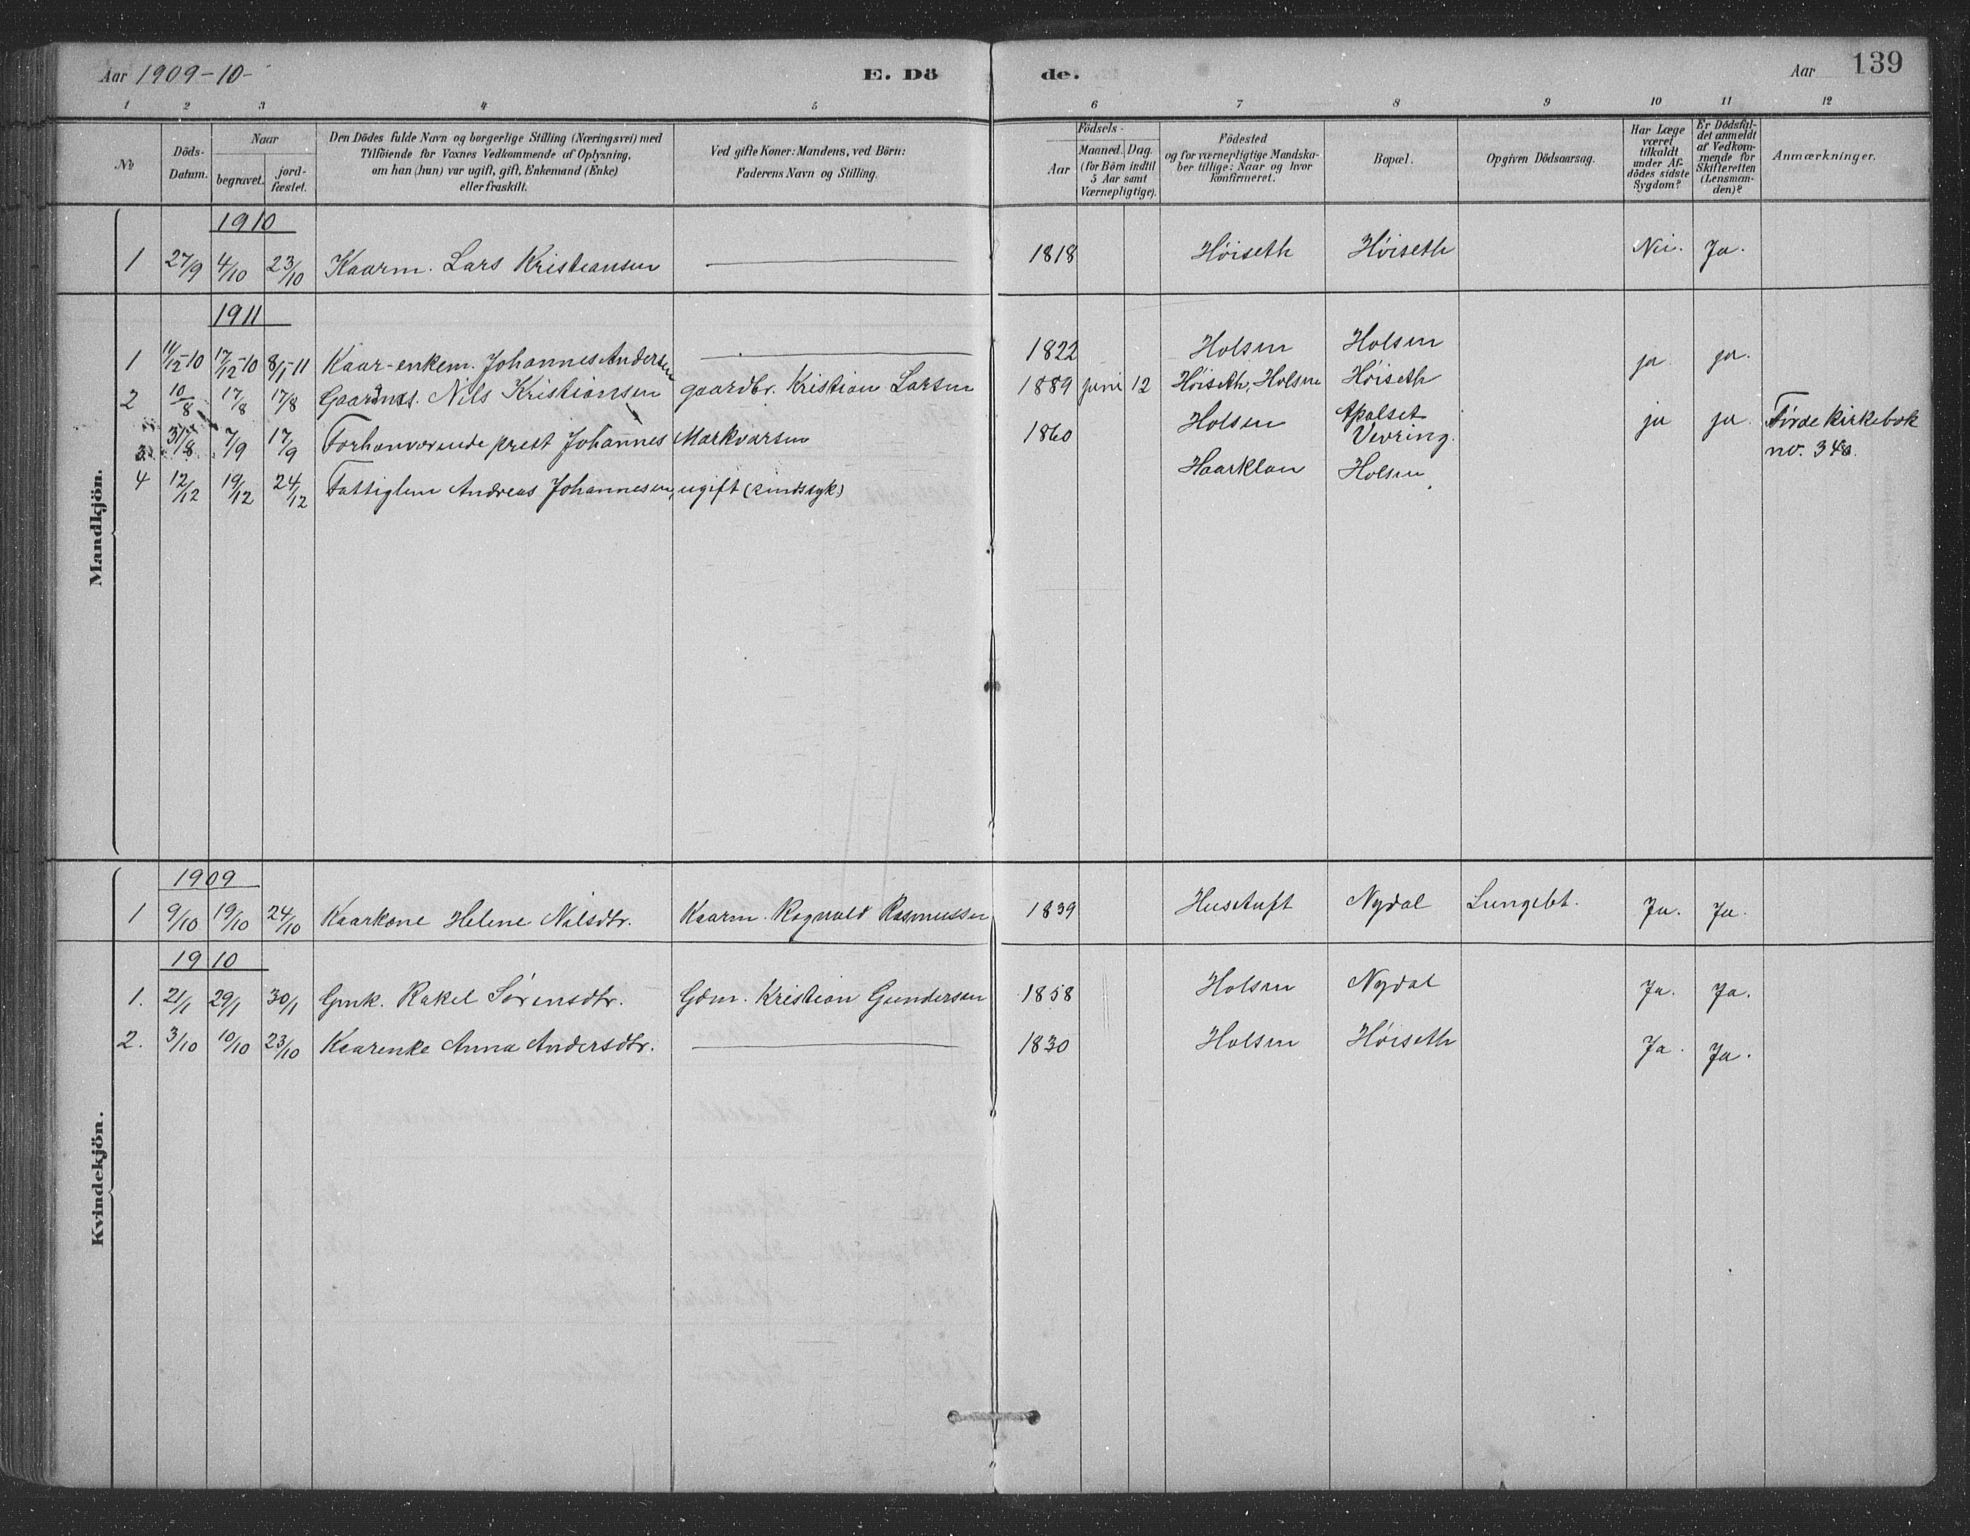 Aar 1909-10- E. Dö de. Aar 139
1 2 3 4 5 6 7 8 9 10 11 12
No
Döds-Datum.
Naar
begravet. jordfæstet.
Den Dödes fulde Navn og borgerlige Stilling (Næringsvei) med Tilföiende for Voxnes Vedkommende af Oplysning, om han (hun) var ugift, gift, Enkemand (Enke) eller fraskilt.
Ved gifte Koner: Mandens, ved Börn: Faderens Navn og Stilling.
Födsels-
Aar
Maaned. Dag.
(for Börn indtil 5 Aar samt Værnepligtige).
Födested og for værnepligtige Mandskaber tillige: Naar og hvor konfirmeret.
Bopæl.
Opgiven Dödsaarsag.
Har Læge været tilkaldt under Afdödes sidste Sygdom?
Er Dödsfaldet anmeldt af Vedkommende for Skifteretten (Lensmanden)?
Anmærkninger.
Mandkjön.
1910
1 27/9 4/10 23/10 Kaarm. Lars Kristiansen 1818 Høiseth Høiseth Nei. Ja.
1911
1 11/12-10 17/12-10 8/1-11 Kaar-enkem. Johannes Andersen 1822 Holsen Holsen ja ja.
2 10/8 17/8 17/8 Nils Kristiansen gaardbr. Kristian Larsen 1889 juni 12 Høiseth, Holsen Høiseth
3. 31/8 7/9 17/9 Forhenværende prest Johannes Markvarsen 1860 Holsen Apalset Vevring. ja ja. Førde kirkebok no. 348.
4 12/12 19/12 24/12 Fattiglem Andreas Johannesen, ugift (sindssyk) Haarklau Holsen.
Kvindekjön.
1909
1 9/10 19/10 24/10 Kaarkone Helene Nilsdtr. Kaarm. Rognald Rasmussen 1839 Hustuft Nydal Lungebt. Ja. Ja.
1910
1. 21/1 29/1 30/1 Gmk. Rakel Sørensdtr. Gdm. Kristian Gundersen 1858 Holsen Nydal Ja. Ja.
2. 3/10 10/10 23/10 Kaarenke Anna Andersdtr. 1830 Holsen Høiseth Ja. Ja.